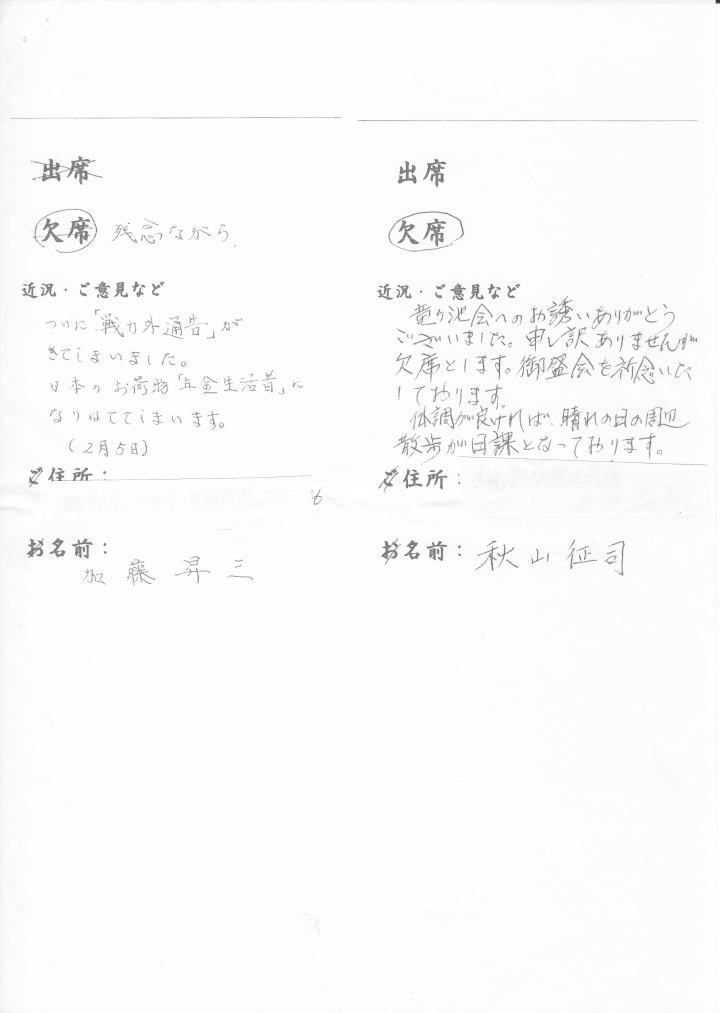 出席
欠席 残念ながら.
近況・ご意見など
ついに「戦力外通告」が
きてしまいました。
日本の お荷物「年金生活者」に
なりはててしまいます。
(2月5日)
ご住所：
お名前：
加藤昇三
出席
欠席
近況・ご意見など
竜ヶ池会へのお誘いありがとう
ございました。申し訳ありませんが
欠席とします。御盛会を祈念いた
しております。
体調が良ければ、晴れの日の周辺
散歩が日課となっております。
ご住所：
お名前：秋山征司